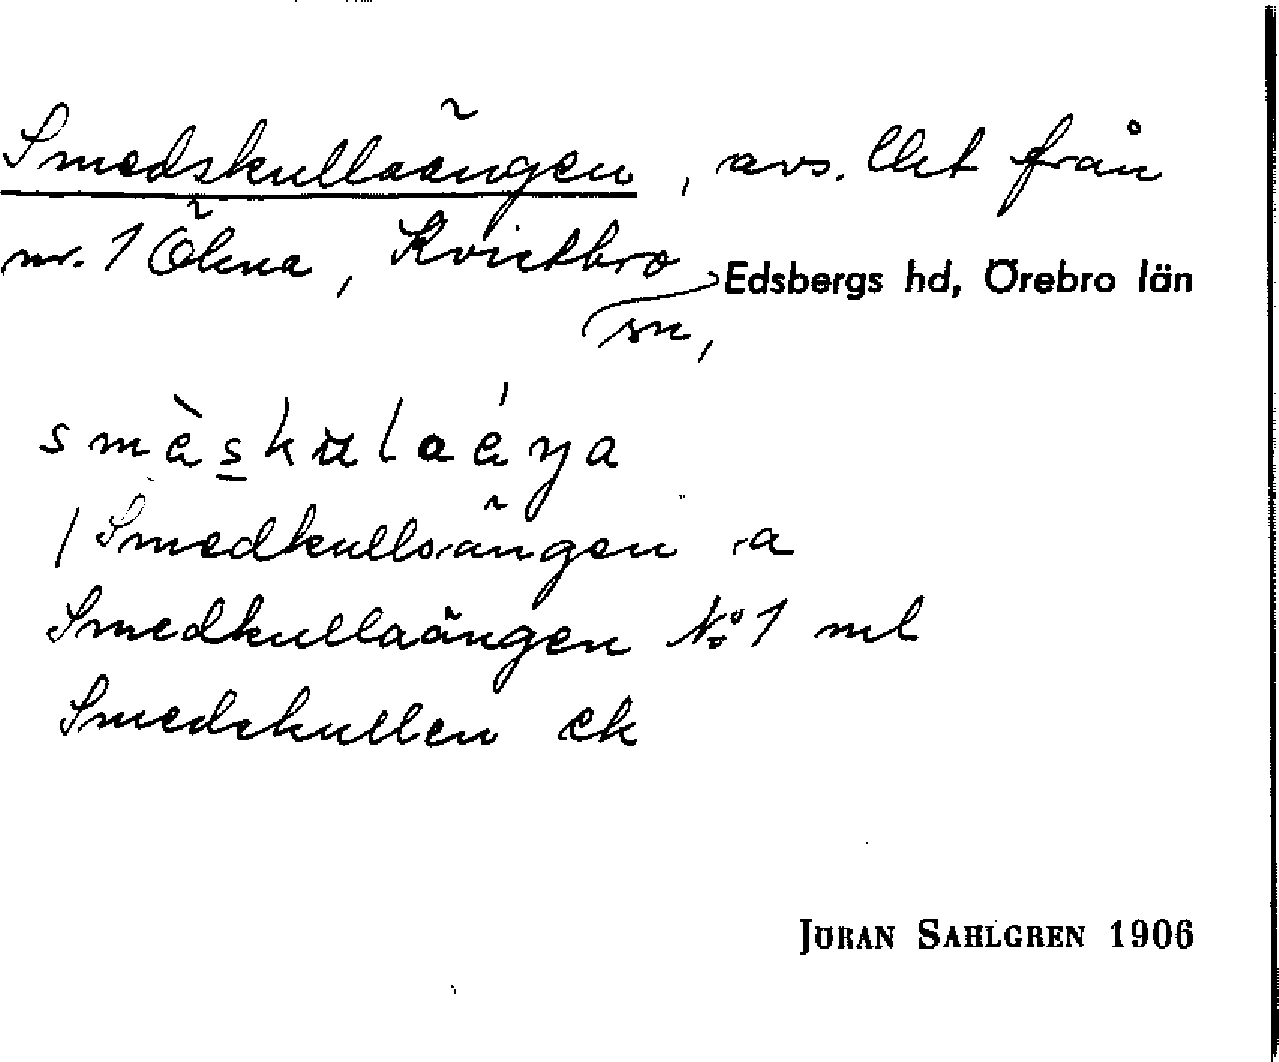 Smedskullaängen, avs. från
nr. 1 Ökna, Kvistbro
sn, Edsbergs hd, Örebro län
smèskulaéŋa
Smedkullsängen a
Smedkullaängen No 1 ml
Smedskullen ek
JÖRAN SAHLGREN 1906